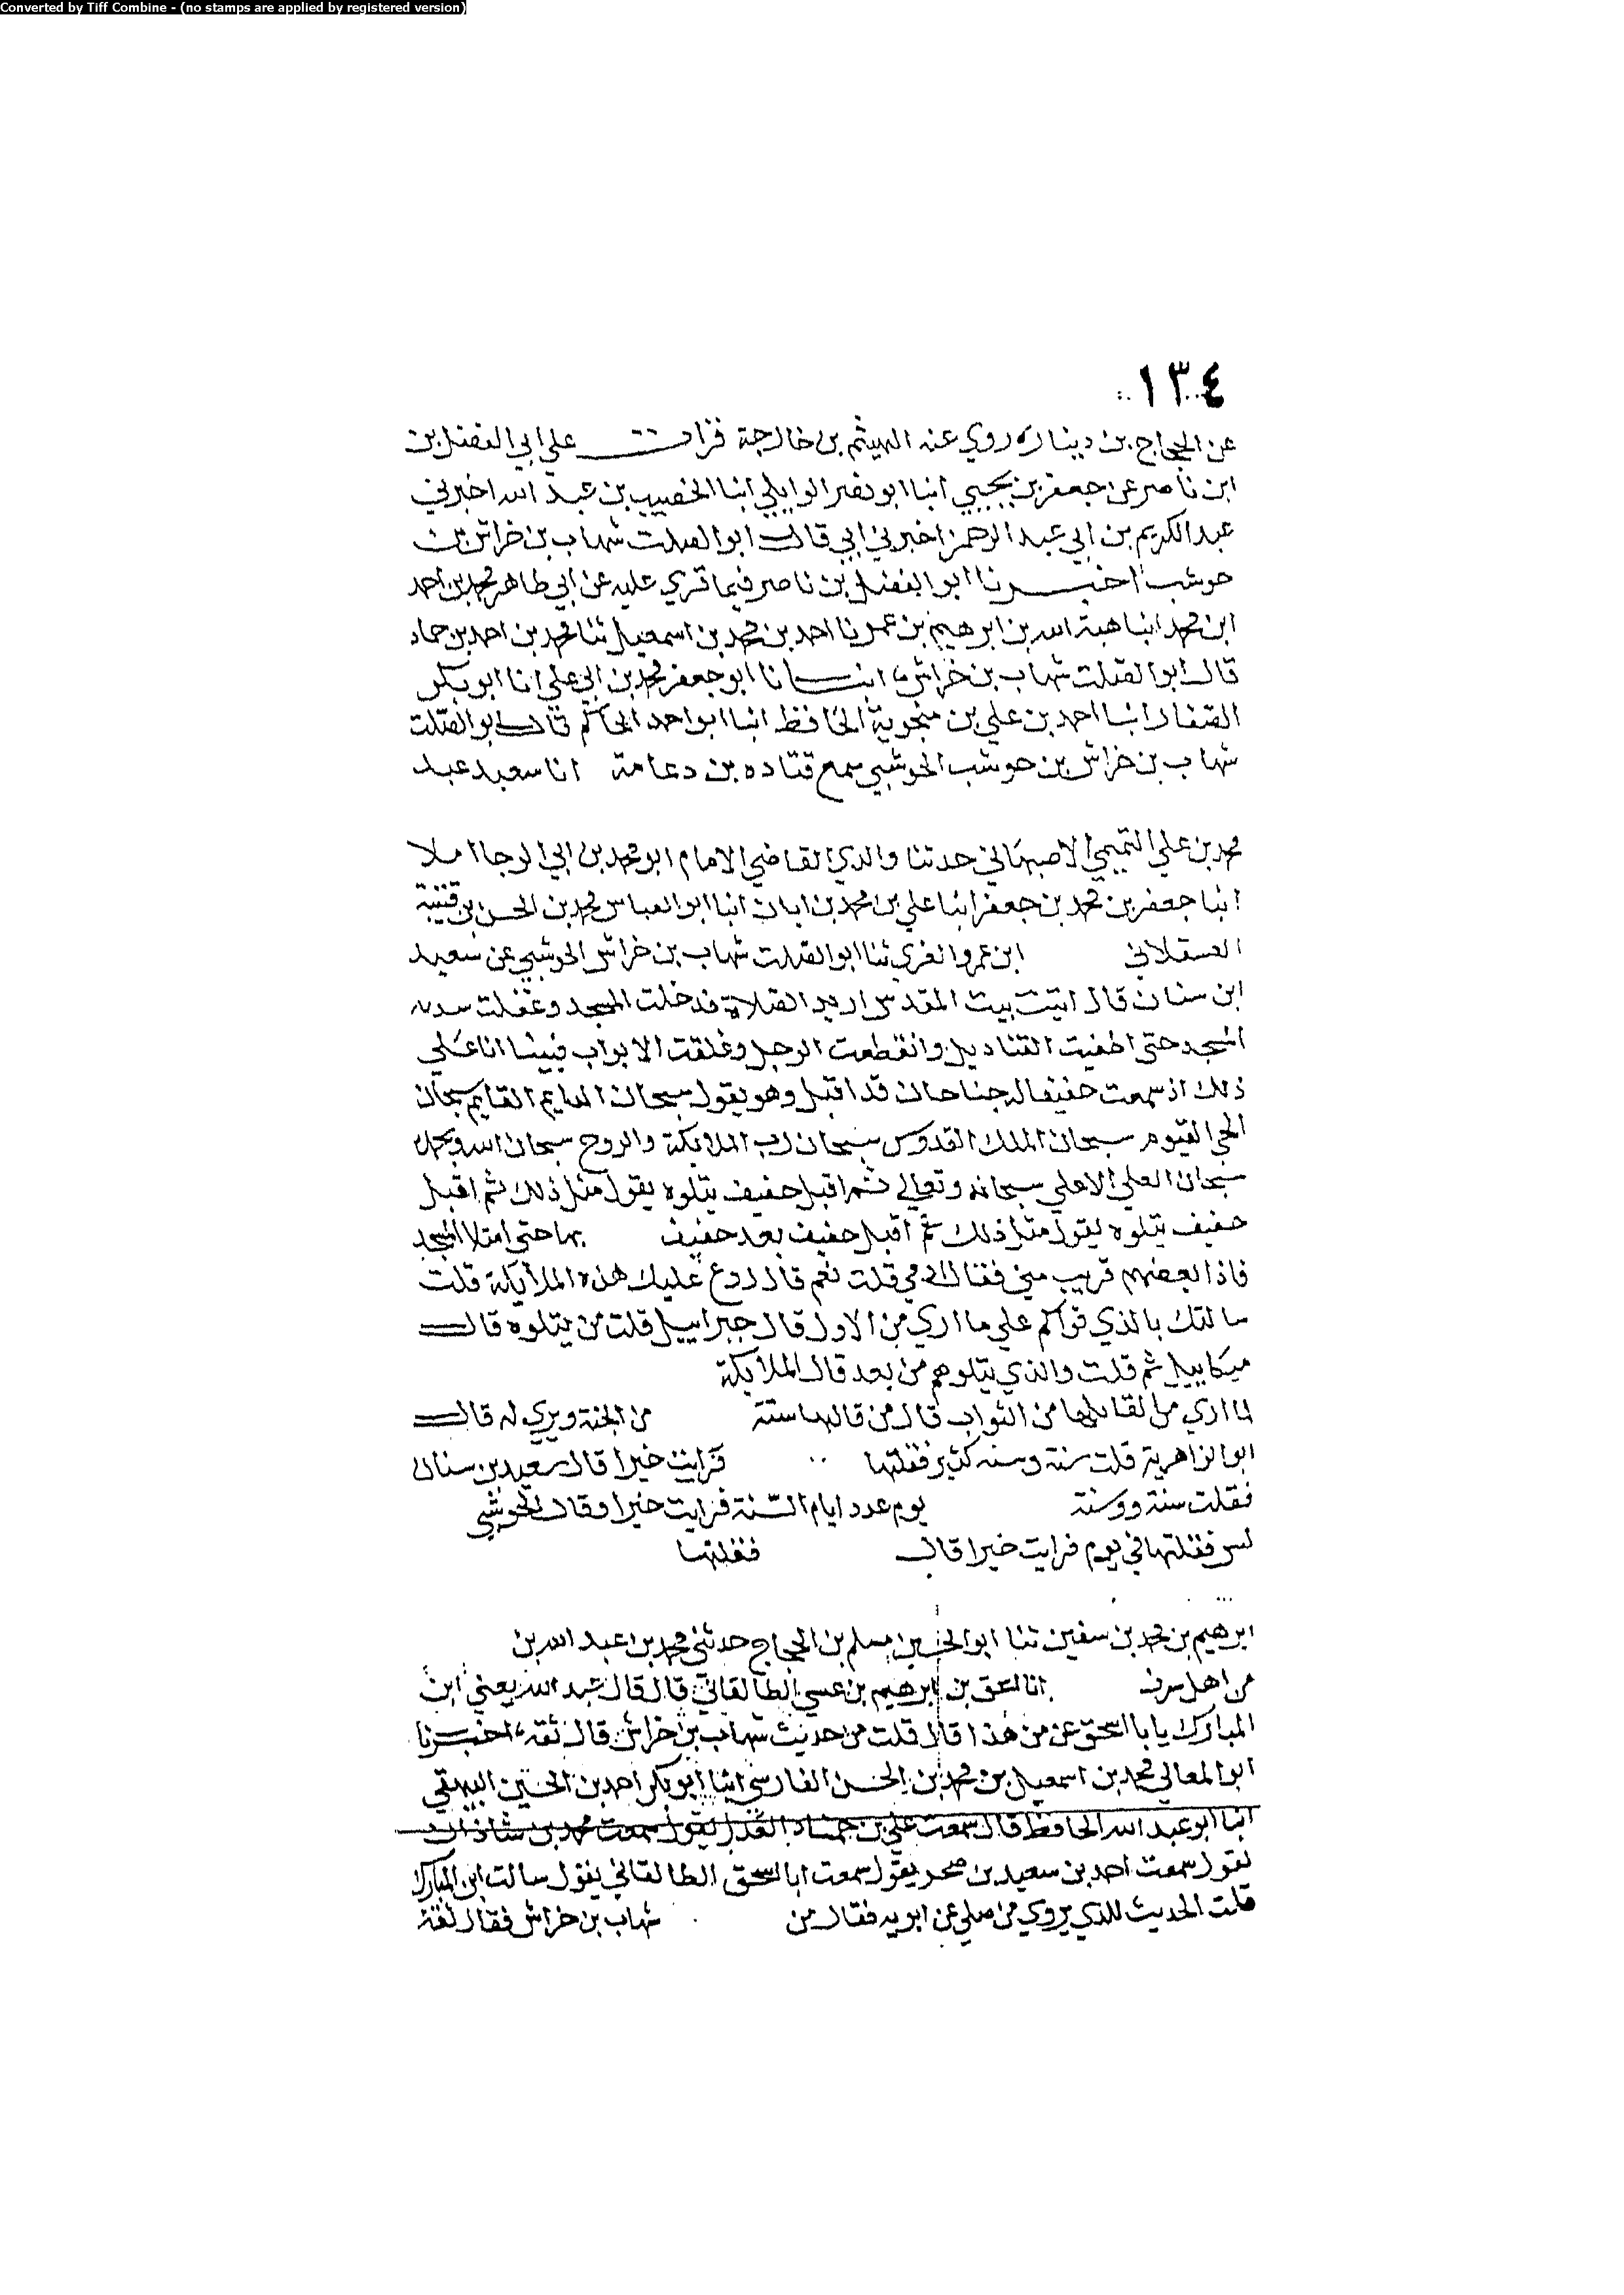 Converted by Tiff Combine - (no stamps are applied by registered version)
١٣٤
عن الحجاج بن دينار روي عنه الهيثم بن خارجة قرات علي ابي الفضل بن
ابن ناصر عن جعفر بن يحيي انبا ابو نصر الوايلي انبا الخصيب بن عبد الله اخبرني
عبد الكريم بن ابي عبد الرحمن اخبرني ابي قال ابو الصلت شهاب بن خراش بن
حوشب اخبرنا ابو الفضل بن ناصر فيما قري عليه عن ابي طاهر محمد بن احمد
ابن محمد انبا هبة الله بن ابرهيم بن عمر نا احمد بن محمد بن اسمعيل ثنا محمد بن احمد بن حماد
قال ابو الصلت شهاب بن خراش انبانا ابو جعفر محمد بن ابي علي انا ابو بكر
الصفار انبا احمد بن علي بن منجوية الحافظ انبا ابو احمد الحاكم قال ابو الصلت
شهاب بن خراش بن حوشب الحوشبي سمع قتاده بن دعامة انا سعيد عبد
محمد بن علي التميمي الاصبهاني حدثنا والدي القاضي الامام ابو محمد بن ابي الرجا املا
انبا جعفر بن محمد بن جعفر انبا علي بن محمد بن ابان انبا ابو العباس محمد بن الحسن بن قتيبة
العسقلاني ابن عمرو الغزي ثنا ابو الصلت شهاب بن خراش الحوشبي عن سعيد
ابن سنان قال اتيت بيت المقدس اريد الصلاة فدخلت المسجد وغفلت سدنه
المسجد حتى اطفيت القناديل وانقطعت الرجل وغلقت الابواب فبينا انا علي
ذلك اذ سمعت حفيفا له جناحان قد اقبل وهو يقول سبحان الدايم القايم سبحان
الحي القيوم سبحان الملك القدوس سبحان رب الملايكة والروح سبحان الله وبحمده
سبحان العلي الاعلي سبحانه وتعالي ثم اقبل حفيف يتلوه يقول مثل ذلك ثم اقبل
حفيف يتلوه يقول مثل ذلك ثم اقبل حفيف بعد حفيف بها حتى امتلا المسجد
فاذا بعضهم قريب مني فقال ادمي قلت نعم قال لا روع عليك هذه الملايكة قلت
سالتك بالذي قواكم علي ما اري من الاول قال جبراييل قلت من يتلوه قال
ميكاييل ثم قلت والذي يتلوهم من بعد قال الملايكة
لما اري من لقايلها من الثواب قال من قالها سنة من الجنة ويري له قال
ابو الزاهرية قلت سنة وسنه كثير فقلتها فرايت خيرا قال سعيد بن سنان
فقلت سنة ووسنة يوم عدد ايام السنة فرايت خيرا وقال الحوشبي
فقلتها في يوم فرايت خيرا قال فقلتها
ابرهيم بن محمد بن سفين ثنا ابو الحسين مسلم بن الحجاج حدثني محمد بن عبد الله بن
من اهل مرو انا اسحق بن ابرهيم بن عيسي الطالقاني قال قال عبد الله يعني ابن
المبارك يا با اسحق عن من هذا قال قلت من حديث شهاب بن خراش قال ثقه اخبرنا
ابو المعالي محمد بن اسمعيل بن محمد بن الحسن الفارسي انبا ابو بكر احمد بن الحسين البيهقي
انبا ابو عبد الله الحافظ قال سمعت علي بن حمشاد العدل يقول سمعت محمد بن شاذان
يقول سمعت احمد بن سعيد بن صخر يقول سمعت ابا اسحق الطالقاني يقول سالت ابن المبارك
قلت الحديث الذي يروي من صلي عن ابويه فقال من شهاب بن خراش فقال ثقة